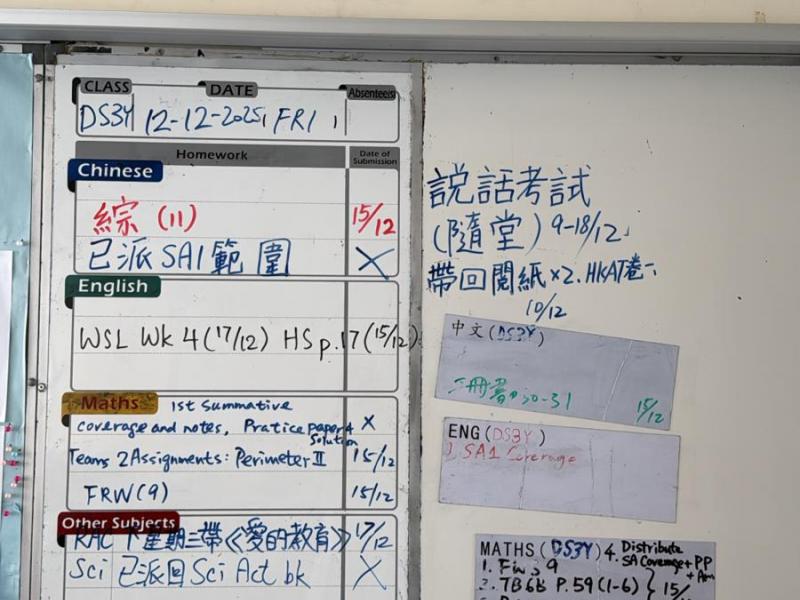 CLASS DATE Absentee(s)
DS3Y 12-12-2025, FRI,
Homework Date of Submission
Chinese
綜 (11) 15/12
已派 SA1 範圍 X
English
WSL Wk 4 (17/12) HS p.17 (15/12)
Maths 1st Summative
coverage and notes, Pratice paper 4 X
Solution
Teams 2 Assignments: Perimeter II 15/12
FRW (9) 15/12
Other Subjects
RAC 下星期三帶《愛的教育》 17/12
Sci 已派回 Sci Act bk X
説話考試
(隨堂) 9-18/12
帶回閱紙 x2. HKAT卷一
10/12
中文 (DS3Y)
30-31 15/12
ENG (DS3Y)
SA1 Coverage
MATHS (DS3Y) 4. Distribute
SA Coverage + PP
1. 9
2. TB6B P.59 (1-6) 15/